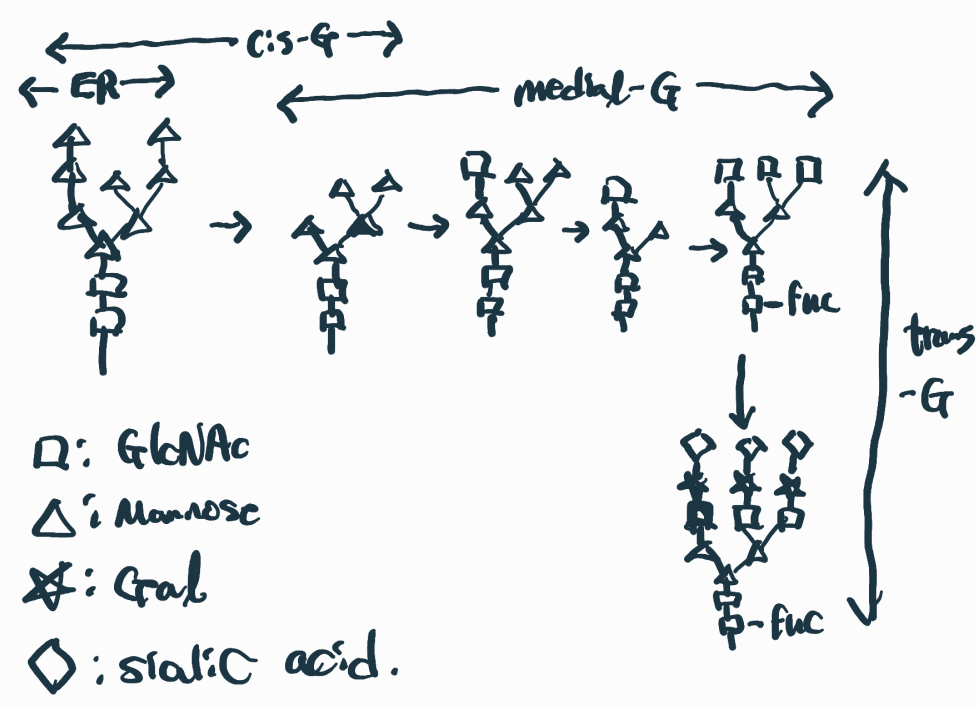 cis-G
ER
medial-G
fuc
trans
-G
□: GlcNAc
△: Mannose
☆: Gal
fuc
◇: sialic acid.